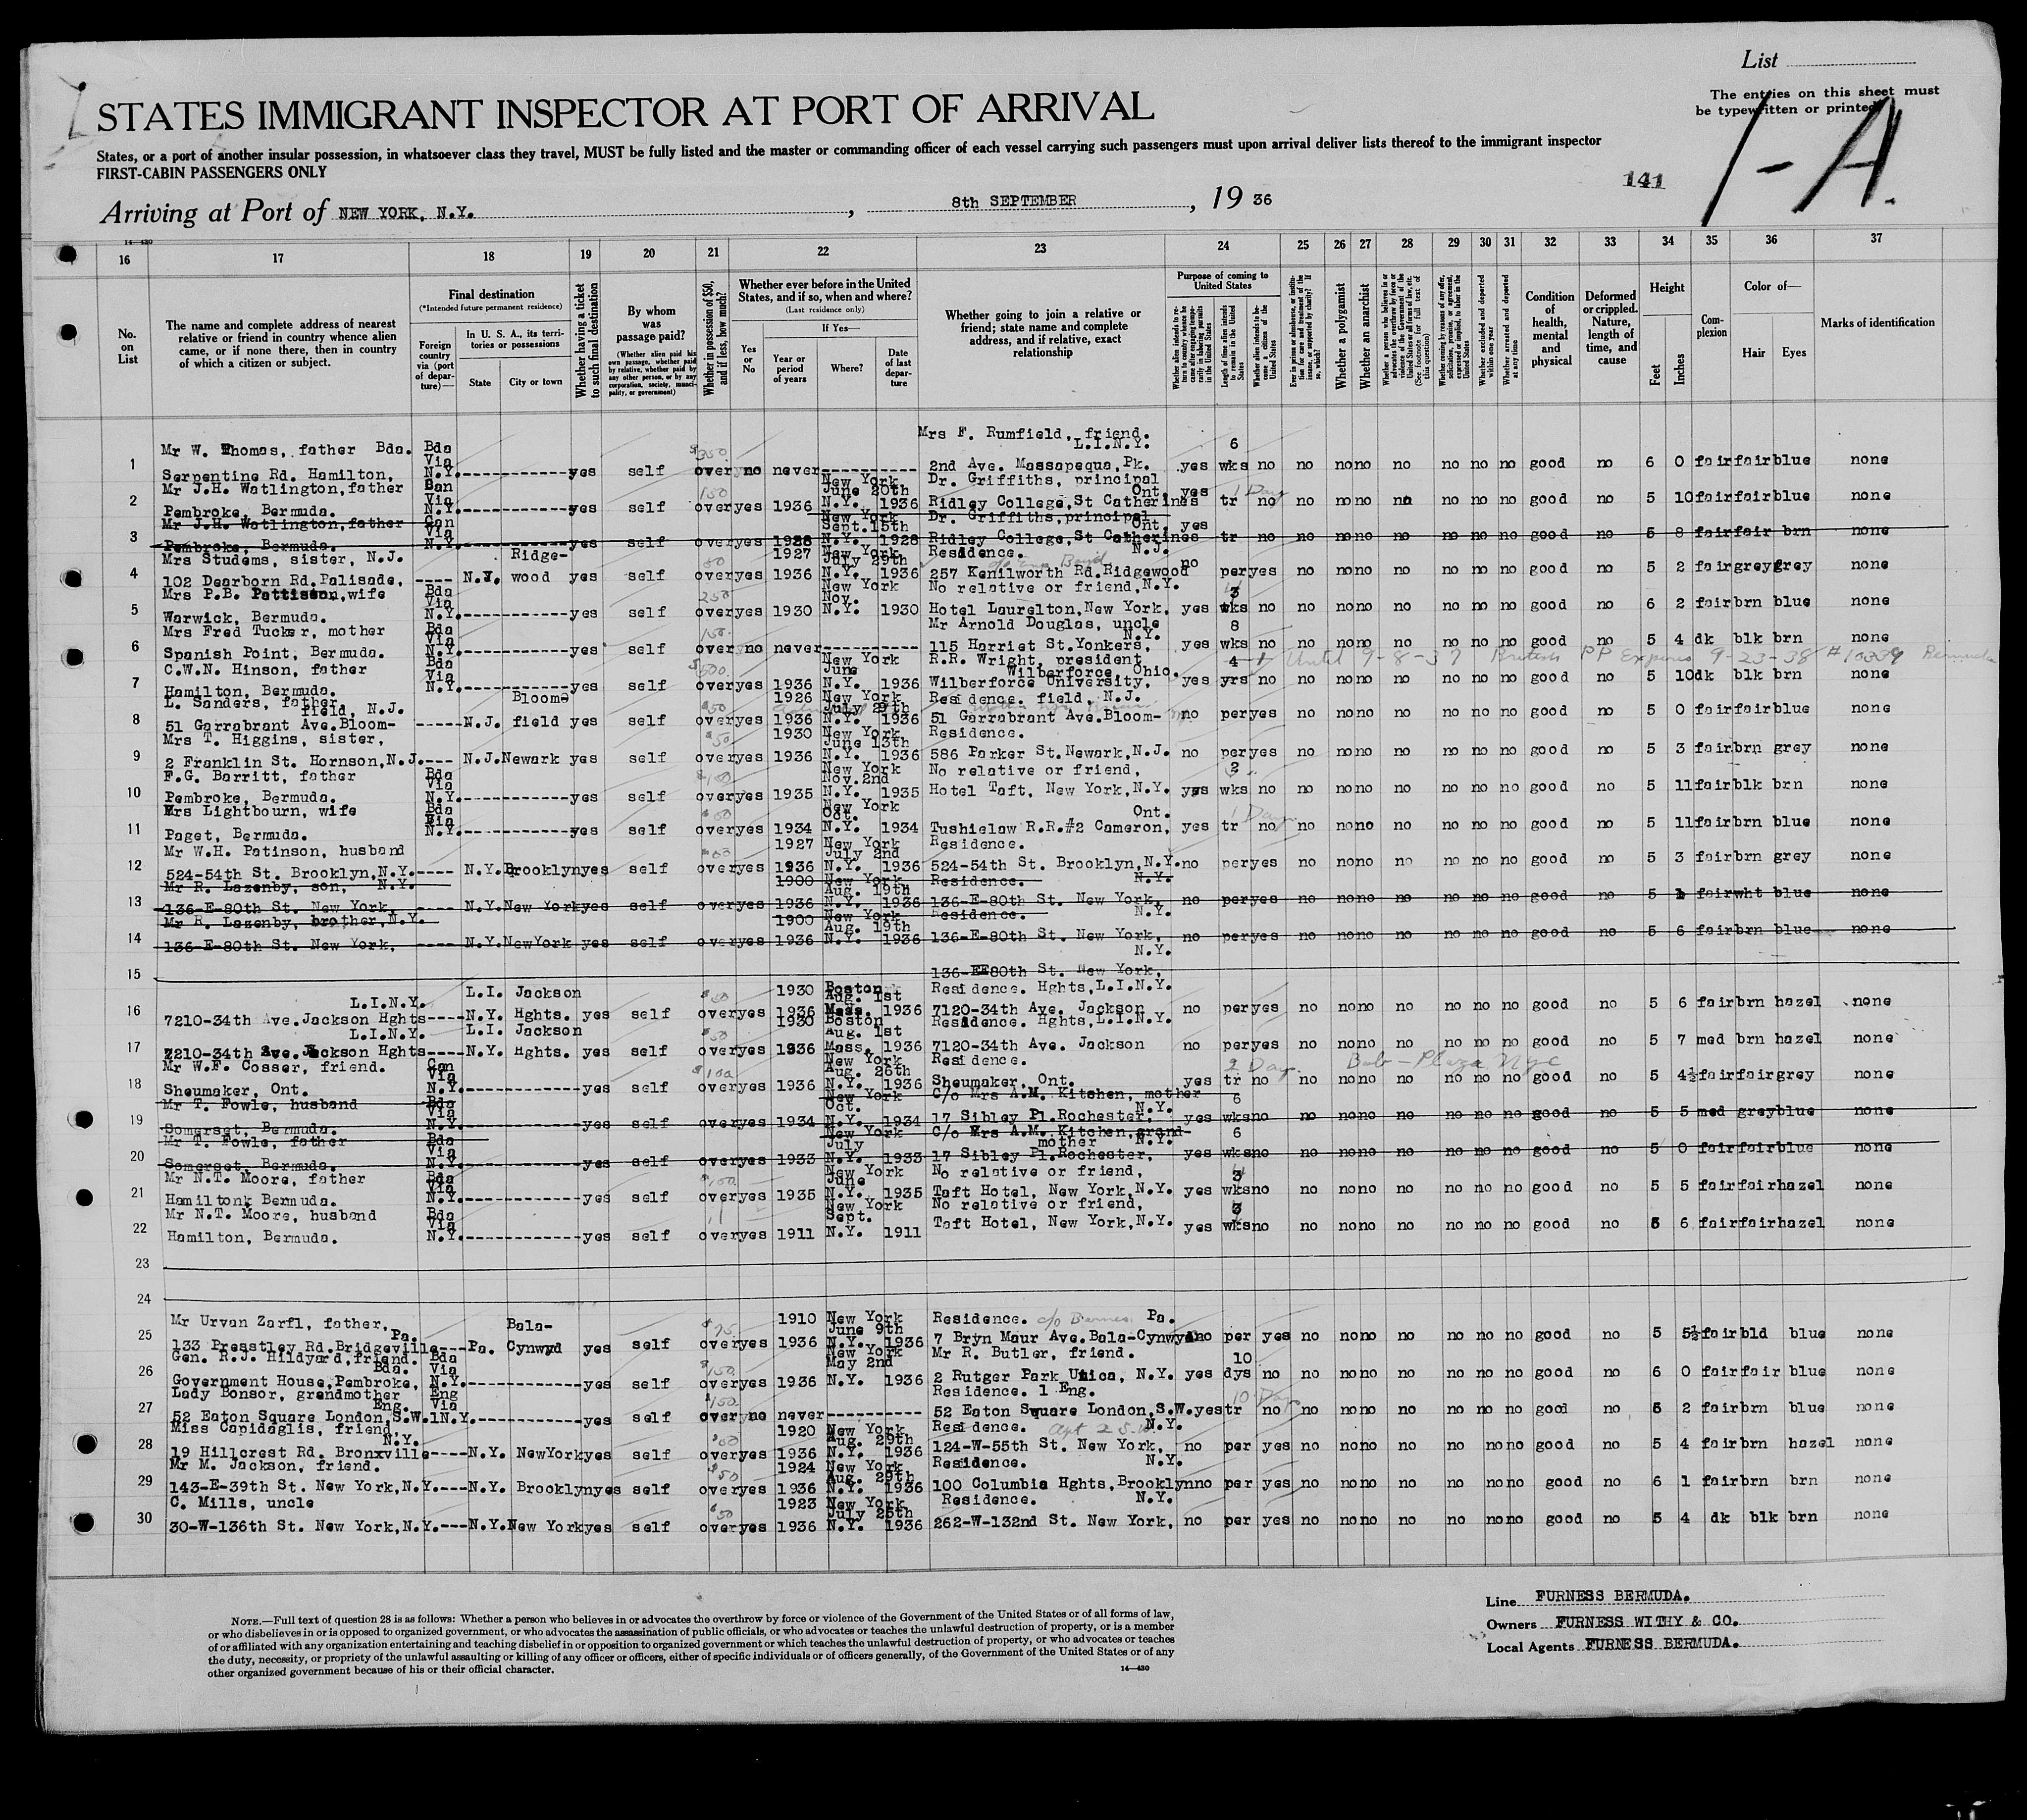 List
The entries on this sheet must
be typewritten or printed
1-A.
STATES IMMIGRANT INSPECTOR AT PORT OF ARRIVAL
States, or a port of another insular possession, in whatsoever class they travel, MUST be fully listed and the master or commanding officer of each vessel carrying such passengers must upon arrival deliver lists thereof to the immigrant inspector
FIRST-CABIN PASSENGERS ONLY
141
Arriving at Port of NEW YORK, N.Y., 8th SEPTEMBER, 19 36
14-430
16 17 18 19 20 21 22 23 24 25 26 27 28 29 30 31 32 33 34 35 36 37
No. on List
The name and complete address of nearest relative or friend in country whence alien came, or if none there, then in country of which a citizen or subject.
Final destination
(*Intended future permanent residence)
Foreign country via (port of departure)—
In U. S. A., its territories or possessions
State City or town
Whether having a ticket to such final destination
By whom was passage paid?
(Whether alien paid his own passage, whether paid by relative, whether paid by any other person, or by any corporation, society, municipality, or government)
Whether in possession of $50, and if less, how much?
Whether ever before in the United States, and if so, when and where?
(Last residence only)
Yes or No
If Yes—
Year or period of years
Where?
Date of last departure
Whether going to join a relative or friend; state name and complete address, and if relative, exact relationship
Purpose of coming to United States
Whether alien intends to return to country whence he came after engaging temporarily in laboring pursuits in the United States
Length of time alien intends to remain in the United States
Whether alien intends to become a citizen of the United States
Ever in prison or almshouse, or institution for care and treatment of the insane, or supported by charity? If so, which?
Whether a polygamist
Whether an anarchist
(See footnote for full text of this question)
Whether coming by reasons of any offer, solicitation, promise, or agreement, expressed or implied, to labor in the United States
Whether excluded and deported within one year
Whether arrested and deported at any time
Condition of health, mental and physical
Deformed or crippled. Nature, length of time, and cause
Height
Feet Inches
Complexion
Color of—
Hair Eyes
Marks of identification
Mrs F. Rumfield, friend.
Mr W. Thomas, father Bda. Bda Via $350 L.I.N.Y. 6
1 Serpentine Rd. Hamilton, N.Y. yes self over no never 2nd Ave. Massapequa, Pk. yes wks no no no no no no no no good no 6 0 fair fair blue none
Mr J.H. Watlington, father Can Via 150 New York June 20th Dr. Griffiths, principal Ont. yes 1 Day
2 Pembroke, Bermuda. N.Y. yes self over yes 1936 N.Y. 1936 Ridley College, St Catherines tr no no no no no no no no good no 5 10 fair fair blue none
Mr J.H. Watlington, father Can Via New York Sept.15th Dr. Griffiths, principal Ont. yes
3 Pembroke, Bermuda. N.Y. yes self over yes 1928 N.Y. 1928 Ridley College, St Catherines tr no no no no no no no no good no 5 8 fair fair brn none
Mrs Studems, sister, N.J. Ridge- 50 1927 New York July 29th Residence. N.J. no
4 102 Dearborn Rd. Palisade, N.J. wood yes self over yes 1936 N.Y. 1936 257 Kenilworth Rd. Ridgewood per yes no no no no no no no good no 5 2 fair grey grey none
Mrs P.B. Pattison, wife Bda Via 250 New York Nov. No relative or friend, N.Y. 3
5 Warwick, Bermuda. N.Y. yes self over yes 1930 N.Y. 1930 Hotel Laurelton, New York. yes wks no no no no no no no no good no 6 2 fair brn blue none
Mrs Fred Tucker, mother Bda Via 150. Mr Arnold Douglas, uncle N.Y. 8
6 Spanish Point, Bermuda. N.Y. yes self over no never 115 Harriet St. Yonkers, yes wks no no no no no no no no good no 5 4 dk blk brn none
C.W.N. Hinson, father Bda Via $500. New York June R.R. Wright, president Wilberforce, Ohio. 4 1 Until 9-8-37 British PP Expires 9-23-38 #10339 Bermuda
7 Hamilton, Bermuda. N.Y. yes self over yes 1936 N.Y. 1936 Wilberforce University, yes yrs no no no no no no no no good no 5 10 dk blk brn none
L. Sanders, father, field, N.J. Bloom- $50 1926 New York July 29th Residence. field, N.J.
8 51 Garrabrant Ave. Bloom- N.J. field yes self over yes 1936 N.Y. 1936 51 Garrabrant Ave. Bloom- no per yes no no no no no no no good no 5 0 fair fair blue none
Mrs T. Higgins, sister, $50 1930 New York June 13th Residence.
9 2 Franklin St. Hornson, N.J. N.J. Newark yes self over yes 1936 N.Y. 1936 586 Parker St. Newark, N.J. no per yes no no no no no no no good no 5 3 fair brn grey none
F.G. Barritt, father Bda Via New York Nov. 2nd No relative or friend, 2
10 Pembroke, Bermuda. N.Y. yes self over yes 1935 N.Y. 1935 Hotel Taft, New York, N.Y. yes wks no no no no no no no no good no 5 11 fair blk brn none
Mrs Lightbourn, wife Bda Via New York Oct. Ont. 1 Day
11 Paget, Bermuda. N.Y. yes self over yes 1934 N.Y. 1934 Tushielaw R.R.#2 Cameron, yes tr no no no no no no no no good no 5 11 fair brn blue none
Mr W.H. Patinson, husband 1927 New York July 2nd Residence.
12 524-54th St. Brooklyn, N.Y. N.Y. Brooklyn yes self over yes 1936 N.Y. 1936 524-54th St. Brooklyn, N.Y. no per yes no no no no no no no good no 5 3 fair brn grey none
Mr R. Lazenby, son, N.Y. 1900 New York Aug. 19th Residence. N.Y.
13 136-E-80th St. New York, N.Y. New York yes self over yes 1936 N.Y. 1936 136-E-80th St. New York, no per yes no no no no no no no good no 5 fair wht blue none
Mr R. Lazenby, brother, N.Y. 1900 New York Aug. 19th Residence. N.Y.
14 136-E-80th St. New York, N.Y. New York yes self over yes 1936 N.Y. 1936 136-E-80th St. New York, no per yes no no no no no no no good no 5 6 fair brn blue none
N.Y.
15 136-E-80th St. New York,
L.I.N.Y. L.I. Jackson $50 1930 Boston Aug. 1st Residence. Hghts, L.I.N.Y.
16 7210-34th Ave. Jackson Hghts N.Y. Hghts. yes self over yes 1936 Mass. 1936 7120-34th Ave. Jackson no per yes no no no no no no no good no 5 6 fair brn hazel none
L.I.N.Y. L.I. Jackson $50 1930 Boston Aug. 1st Residence. Hghts, L.I.N.Y.
17 7210-34th Ave. Jackson Hghts N.Y. Hghts. yes self over yes 1936 Mass. 1936 7120-34th Ave. Jackson no per yes no no no no no no no good no 5 7 med brn hazel none
Mr W.F. Cosser, friend. Can Via $100 New York Aug. 26th Residence. 2 Day. Bob-Plaza NYC
18 Sheumaker, Ont. N.Y. yes self over yes 1936 N.Y. 1936 Sheumaker, Ont. yes tr no no no no no no no no good no 5 4½ fair fair grey none
Mr T. Fowle, husband Bda Via New York Oct. C/o Mrs A.M. Kitchen, mother N.Y. 6
19 Somerset, Bermuda. N.Y. yes self over yes 1934 N.Y. 1934 17 Sibley Pl. Rochester, yes wks no no no no no no no no good no 5 5 med grey blue none
Mr T. Fowle, father Bda Via New York July C/o Mrs A.M. Kitchen, grand- mother N.Y. 6
20 Somerset, Bermuda. N.Y. yes self over yes 1933 N.Y. 1933 17 Sibley Pl. Rochester, yes wks no no no no no no no no good no 5 0 fair fair blue none
Mr N.T. Moore, father Bda Via $100 New York June No relative or friend, 3
21 Hamilton, Bermuda. N.Y. yes self over yes 1935 N.Y. 1935 Taft Hotel, New York, N.Y. yes wks no no no no no no no no good no 5 5 fair fair hazel none
Mr N.T. Moore, husband Bda Via New York Sept. No relative or friend, 3
22 Hamilton, Bermuda. N.Y. yes self over yes 1911 N.Y. 1911 Taft Hotel, New York, N.Y. yes wks no no no no no no no no good no 5 6 fair fair hazel none
23
24
Mr Urvan Zarfl, father, Pa. Bala- $75 1910 New York June 9th Residence. c/o Barnes. Pa.
25 133 Presstley Rd. Bridgeville Pa. Cynwyd yes self over yes 1936 N.Y. 1936 7 Bryn Maur Ave. Bala-Cynwyd no per yes no no no no no no no good no 5 5½ fair bld blue none
Gen. R.J. Hildyard, friend. Bda. Bda Via $150. New York May 2nd Mr R. Butler, friend. 10
26 Government House, Pembroke, N.Y. yes self over yes 1936 N.Y. 1936 2 Rutger Park Utica, N.Y. yes dys no no no no no no no no good no 6 0 fair fair blue none
Lady Bonsor, grandmother Eng. Eng Via $150. Residence. 1 Eng. 10 Days
27 52 Eaton Square London, S.W.1 N.Y. yes self over no never 52 Eaton Square London, S.W. yes tr no no no no no no no no good no 5 2 fair brn blue none
Miss Capidaglis, friend, N.Y. 1920 New York Aug. 29th Residence. N.Y.
28 19 Hillcrest Rd. Bronxville N.Y. New York yes self over yes 1936 N.Y. 1936 124-W-55th St. New York, no per yes no no no no no no no good no 5 4 fair brn hazel none
Mr M. Jackson, friend. $50 1924 New York Aug. 29th Residence. N.Y.
29 143-E-39th St. New York, N.Y. N.Y. Brooklyn yes self over yes 1936 N.Y. 1936 100 Columbia Hghts, Brooklyn no per yes no no no no no no no good no 6 1 fair brn brn none
C. Mills, uncle 50 1923 New York July 25th Residence. N.Y.
30 30-W-136th St. New York, N.Y. N.Y. New York yes self over yes 1936 N.Y. 1936 262-W-132nd St. New York, no per yes no no no no no no no good no 5 4 dk blk brn none
NOTE.—Full text of question 28 is as follows: Whether a person who believes in or advocates the overthrow by force or violence of the Government of the United States or of all forms of law,
or who disbelieves in or is opposed to organized government, or who advocates the assassination of public officials, or who advocates or teaches the unlawful destruction of property, or is a member
of or affiliated with any organization entertaining and teaching disbelief in or opposition to organized government or which teaches the unlawful destruction of property, or who advocates or teaches
the duty, necessity, or propriety of the unlawful assaulting or killing of any officer or officers, either of specific individuals or of officers generally, of the Government of the United States or of any
other organized government because of his or their official character.
14-430
Line FURNESS BERMUDA.
Owners FURNESS WITHY & CO.
Local Agents FURNESS BERMUDA.